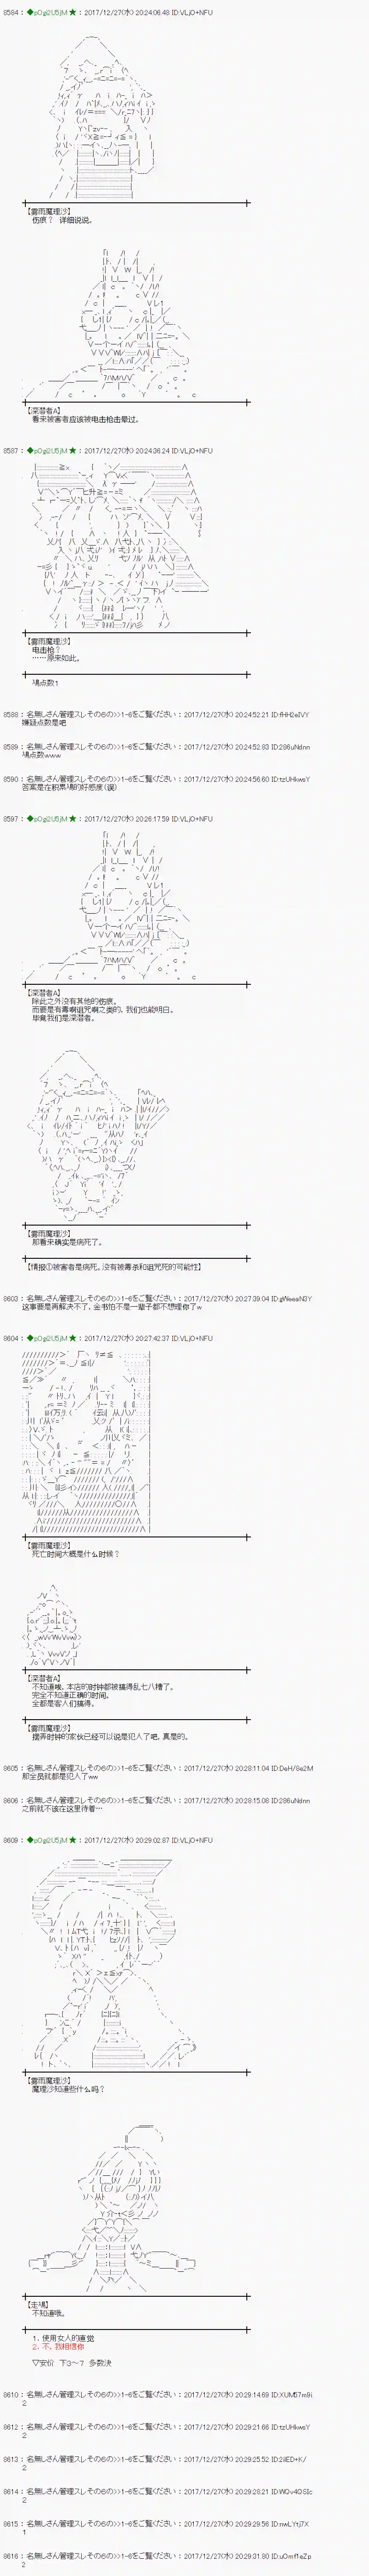 8584 : ◆pOgi2U5jM ★ : 2017/12/27(水) 20:24:06.48 ID:VLjO+NFU
【雾雨魔理沙】
伤痕？ 详细说说。
【深潜者A】
看来被害者应该被电击枪击晕过。
8587 : ◆pOgi2U5jM ★ : 2017/12/27(水) 20:24:36.24 ID:VLjO+NFU
【雾雨魔理沙】
电击枪？
……原来如此。
鳰点数1
8588 : 名無しさん管理スレその6の>>1-6をご覧ください : 2017/12/27(水) 20:24:52.21 ID:fHH2eIVY
嫌疑点数是吧
8589 : 名無しさん管理スレその6の>>1-6をご覧ください : 2017/12/27(水) 20:24:52.83 ID:286uNdnn
鳰点数www
8590 : 名無しさん管理スレその6の>>1-6をご覧ください : 2017/12/27(水) 20:24:56.60 ID:tzUHkwsY
答案是在积累鳰的好感度(误)
8597 : ◆pOgi2U5jM ★ : 2017/12/27(水) 20:26:17.59 ID:VLjO+NFU
【深潜者A】
除此之外没有其他的伤痕。
而要是有毒啊诅咒啊之类的，我们也能明白。
毕竟我们是深潜者。
【雾雨魔理沙】
那看来确实是病死了。
【情报①被害者是病死，没有被毒杀和诅咒死的可能性】
8603 : 名無しさん管理スレその6の>>1-6をご覧ください : 2017/12/27(水) 20:27:39.04 ID:gWeeaN3Y
这事要是再解决不了，金书怕不是一辈子都不想理你了w
8604 : ◆pOgi2U5jM ★ : 2017/12/27(水) 20:27:42.37 ID:VLjO+NFU
【雾雨魔理沙】
死亡时间大概是什么时候？
【深潜者A】
不知道唉，本店的时钟都被搞得乱七八糟了。
完全不知道正确的时间。
全都是客人们搞得。
【雾雨魔理沙】
摆弄时钟的家伙已经可以说是犯人了吧，真是的。
8605 : 名無しさん管理スレその6の>>1-6をご覧ください : 2017/12/27(水) 20:28:11.04 ID:DeH/8e2M
那全员就都是犯人了ww
8606 : 名無しさん管理スレその6の>>1-6をご覧ください : 2017/12/27(水) 20:28:15.08 ID:286uNdnn
之前就不该在这里待着…
8609 : ◆pOgi2U5jM ★ : 2017/12/27(水) 20:29:02.87 ID:VLjO+NFU
【雾雨魔理沙】
魔理沙知道些什么吗？
【走鳰】
不知道哦。
1．使用女人的直觉
2．不，我相信你
▽安价 下3～7 多数决
8610 : 名無しさん管理スレその6の>>1-6をご覧ください : 2017/12/27(水) 20:29:14.69 ID:XUM57m9i
2
8612 : 名無しさん管理スレその6の>>1-6をご覧ください : 2017/12/27(水) 20:29:21.66 ID:tzUHkwsY
2
8613 : 名無しさん管理スレその6の>>1-6をご覧ください : 2017/12/27(水) 20:29:25.52 ID:2iiED+K/
2
8614 : 名無しさん管理スレその6の>>1-6をご覧ください : 2017/12/27(水) 20:29:28.21 ID:WQv4OSIc
2
8615 : 名無しさん管理スレその6の>>1-6をご覧ください : 2017/12/27(水) 20:29:29.56 ID:nwLYtj7X
1
8616 : 名無しさん管理スレその6の>>1-6をご覧ください : 2017/12/27(水) 20:29:31.80 ID:u0mf1eZp
2